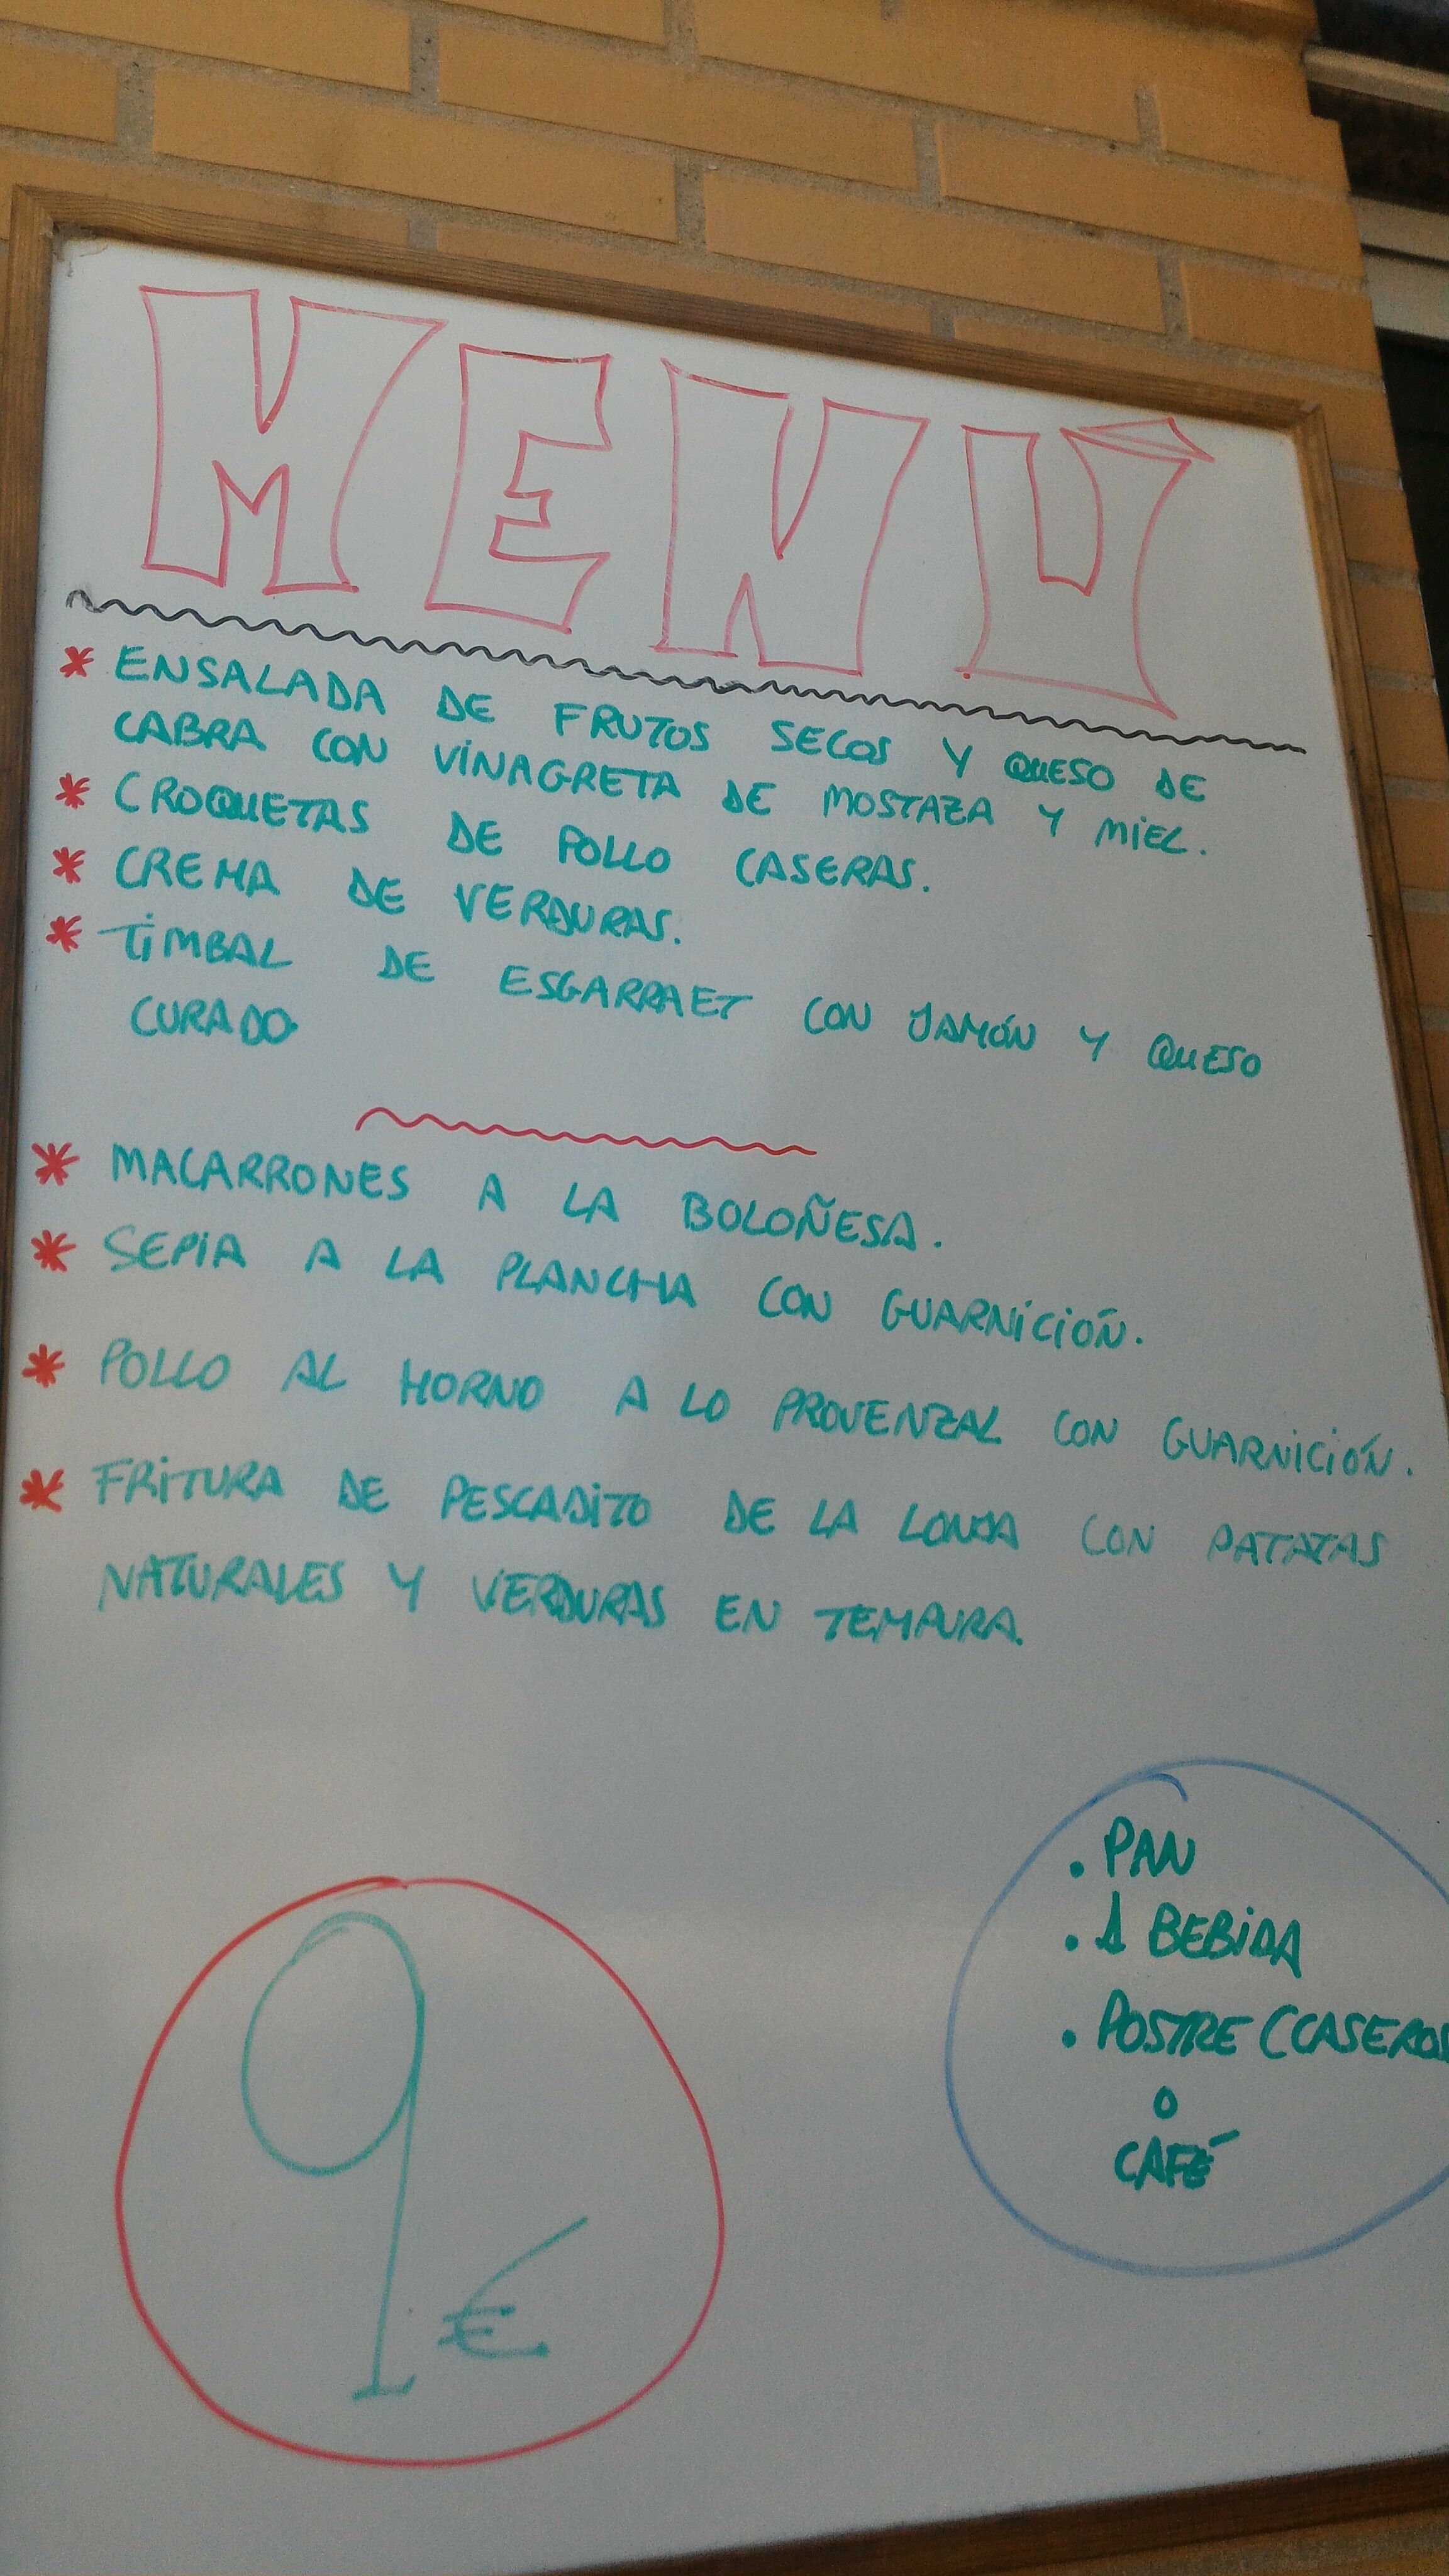 MENÚ
* ENSALADA DE FRUTOS SECOS Y QUESO DE
CABRA CON VINAGRETA DE MOSTAZA Y MIEL.
* CROQUETAS DE POLLO CASERAS.
* CREMA DE VERDURAS.
* TIMBAL DE ESGARRAET CON JAMÓN Y QUESO
CURADO.
* MACARRONES A LA BOLOÑESA.
* SEPIA A LA PLANCHA CON GUARNICIÓN.
* POLLO AL HORNO A LO PROVENZAL CON GUARNICIÓN.
* FRITURA DE PESCADITO DE LA LONJA CON PATATAS
NATURALES Y VERDURAS EN TEMPURA.
. PAN
. 1 BEBIDA
. POSTRE (CASEROS
O
CAFÉ
9 €